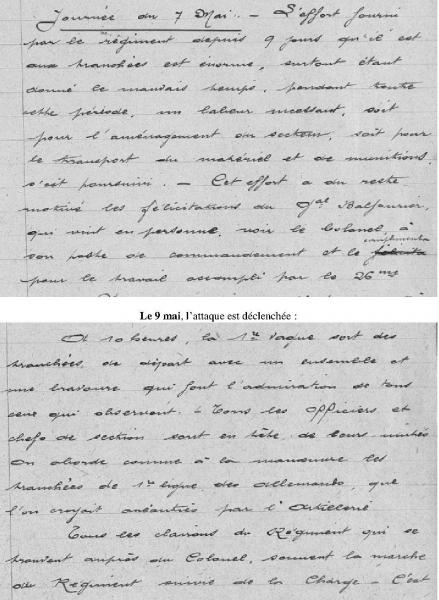 Journée du 7 Mai. - L'effort fourni
par le régiment depuis 9 jours qu'il est
aux tranchées est énorme, surtout étant
donné le mauvais temps. pendant toute
cette période, un labeur incessant, soit
pour l'aménagement du secteur, soit pour
le transport du matériel et de munitions,
s'est poursuivi. - Cet effort a du reste
motivé les félicitations du Gal Balfourier,
qui vint en personne, voir le Colonel à
son poste de commandement et le complimenta
pour le travail accompli par le 26me
Le 9 mai, l'attaque est déclenchée :
A 10 heures, la 1re Vague sort des
tranchées de départ avec un ensemble et
une bravoure qui font l'admiration de tous
ceux qui observent. - Tous les Officiers et
chefs de section sont en tête de leurs unités
On aborde comme à la manœuvre les
tranchées de 1re ligne des allemands, que
l'on croyait anéanties par l'Artillerie
Tous les clairons du Régiment qui se
trouvent auprès du Colonel, sonnent la marche
du Régiment suivie de la Charge - C'est